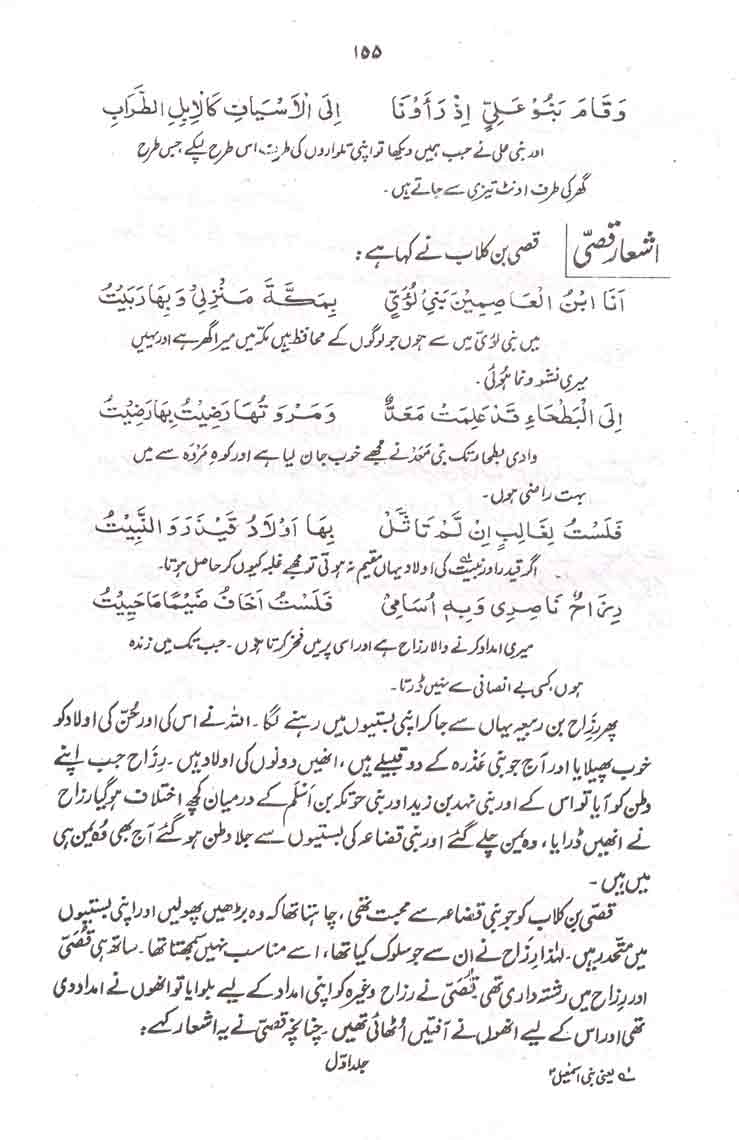 ۱۵۵
وَقَامَ بَنُوْ عَلِيٍّ اِذْ رَأَوْنَا    اِلَى الْاَسْيَافِ كَالْاِبِلِ الطَّرَابِ
اور بنی علی نے جب ہمیں دیکھا تو اپنی تلواروں کی طرف اس طرح لپکے جس طرح
گھر کی طرف اونٹ تیزی سے جاتے ہیں۔
اشعار قصیّ
قصی بن کلاب نے کہا ہے:
اَنَا ابْنُ الْعَاصِمِيْنَ بَنِيْ لُؤَيٍّ    بِمَكَّةَ مَنْزِلِيْ وَبِهَا رَبَيْتُ
میں بنی لُوَیّ میں سے ہوں جو لوگوں کے محافظ ہیں مکّہ میں میرا گھر ہے اور یہیں
میری نشو و نما ہُوئی۔
اِلَى الْبَطْحَاءِ قَدْ عَلِمَتْ مَعَدٌّ    وَمَرْوَتُهَا رَضِيْتُ بِهَا رَضِيْتُ
وادی بطحاء تک بنی مَعَدّ نے مجھے خوب جان لیا ہے اور کوہِ مَرْوَہ سے میں
بہت راضی ہوں۔
فَلَسْتُ لِغَالِبٍ اِنْ لَّمْ تَاَثَّلْ    بِهَا اَوْلَادُ قَيْذَرَ وَالنَّبِيْتُ
اگر قیدر اور نبیت کی اولاد یہاں مقیم نہ ہوتی تو مجھے غلبہ کیوں کر حاصل ہوتا۔
رِزَاحٌ نَاصِرِيْ وَبِهٖ اُسَامِيْ    فَلَسْتُ اَخَافُ ضَيْمًا مَا حَيِيْتُ
میری امداد کرنے والا رزاح ہے اور اسی پر میں فخر کرتا ہوں۔ جب تک میں زندہ
ہوں کسی بے انصافی سے نہیں ڈرتا۔
پھر رِزَاح بن ربیعہ یہاں سے جا کر اپنی بستیوں میں رہنے لگا۔ اللہ نے اس کی اور حُنّ کی اولاد کو
خوب پھیلایا اور آج جو بنی عَذْرہ کے دو قبیلے ہیں، انھیں دونوں کی اولاد ہیں۔ رِزَاح جب اپنے
وطن کو آیا تو اس کے اور بنی نہد بن زید اور بنی حوتکہ بن اَسْلَم کے درمیان کچھ اختلاف ہو گیا رزاح
نے انھیں ڈرایا، وہ یمن چلے گئے اور بنی قضاعہ کی بستیوں سے جلا وطن ہو گئے آج بھی وُہ یمن ہی
میں ہیں۔
قصیّ بن کلاب کو جو بنی قضاعہ سے محبت تھی، چاہتا تھا کہ وہ بڑھیں پھولیں اور اپنی بستیوں
میں متحد رہیں۔ لہٰذا رِزَاح نے ان سے جو سلوک کیا تھا، اسے مناسب نہیں سمجھتا تھا۔ ساتھ ہی قُصَیّ
اور رِزَاح میں رشتہ داری تھی۔ قُصَیّ نے رزاح وغیرہ کو اپنی امداد کے لیے بلوایا تو انھوں نے امداد دی
تھی اور اس کے لیے انھوں نے آفتیں اُٹھائی تھیں۔ چنانچہ قصیّ نے یہ اشعار کہے:
لہ یعنی بنی اسمٰعیل ۱۲
جلد اوّل